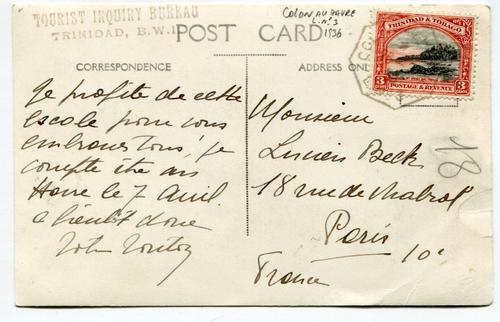 TOURIST INQUIRY BUREAU
TRINIDAD, B.W.I.
POST CARD
COLON AU HAVRE
L. N° 3
1936
TRINIDAD & TOBAGO
3 3
POSTAGE & REVENUE
CORRESPONDENCE
ADDRESS ONL
Je profite de cette
escale pour vous
embrasser tous, je
compte être au
Havre le 7 Avril
a bientôt donc
Monsieur
Lucien Beck
18 rue de Chabrol
Paris 10e
France
18